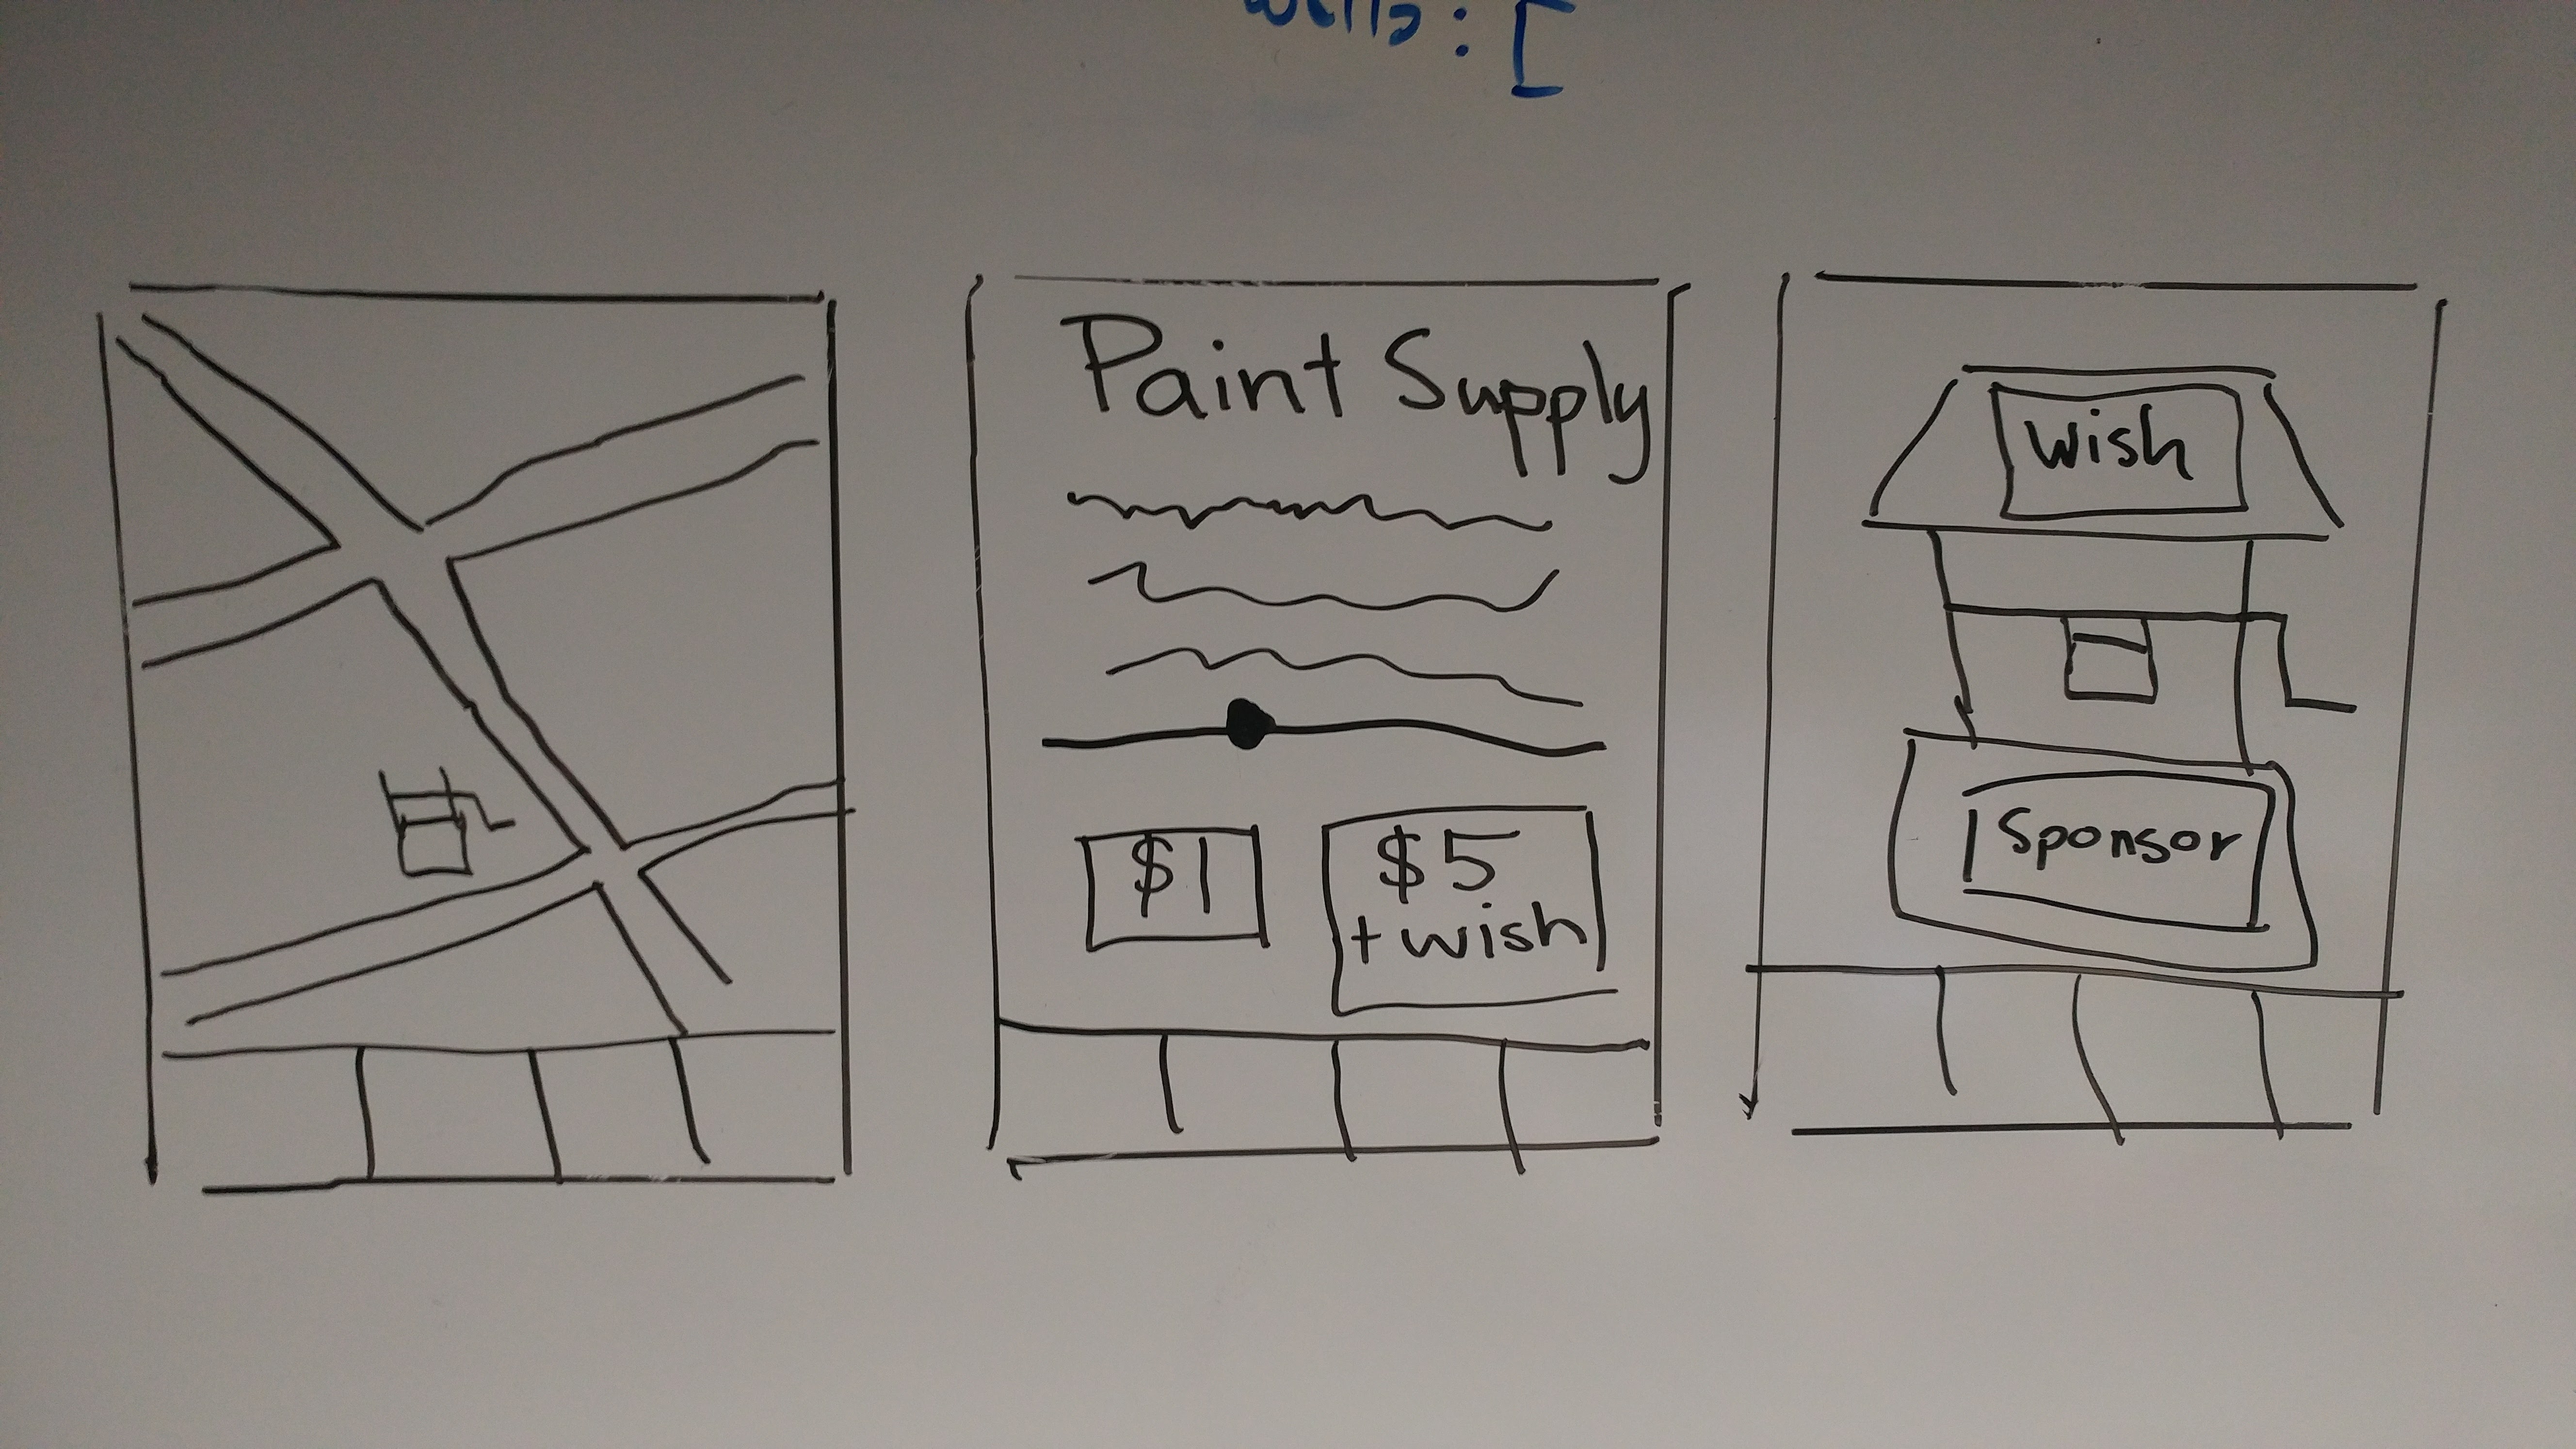 : [
Paint Supply
$1
$5
+ wish
wish
Sponsor